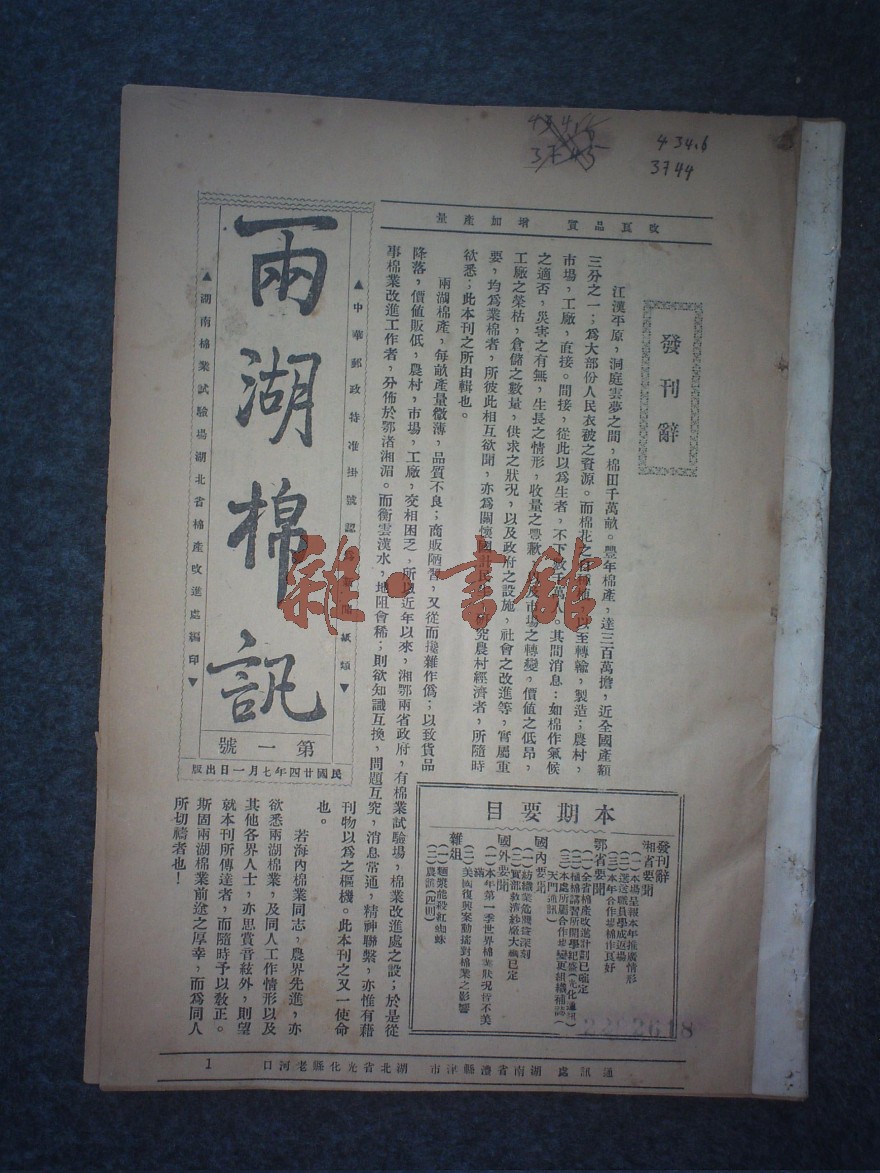 43 4.6
37 45
434.6
3744
改良品質　增加產量
發刊辭
江漢平原，洞庭雲夢之間，棉田千萬畝。豐年棉產，達三百萬擔，近全國產額
三分之一；爲大部份人民衣被之資源。而棉花之
以至轉輸，製造；農村，
市場，工廠，直接。間接，從此以爲生者，不下數千萬
其間消息：如棉作氣候
之適否，災害之有無，生長之情形，收量之豐歉
及市場之轉變，價值之低昂，
工廠之榮枯，倉儲之數量，供求之狀況，以及政府之設施，社會之改進等，實屬重
要，均爲業棉者，所彼此相互欲聞，亦爲關懷國計民生
研究農村經濟者，所隨時
欲悉；此本刊之所由輯也。
兩湖棉產，每畝產量微薄，品質不良；商販陋習，又從而攙雜作僞；以致貨品
降落，價值販低，農村，市場，工廠，交相困乏，所以近年以來，湘鄂兩省政府，有棉業試驗場，棉業改進處之設；於是從
事棉業改進工作者，分佈於鄂渚湘湄。而衡雲漢水，地阻會稀；則欲知識互換，問題互究，消息常通，精神聯繫，亦惟有藉
刊物以爲之樞機。此本刊之又一使命
也。
若海內棉業同志，農界先進，亦
欲悉兩湖棉業，及同人工作情形以及
其他各界人士，亦思賞音絃外，則望
就本刊所傳達者，而隨時予以敎正。
斯固兩湖棉業前途之厚幸，而爲同人
所切禱者也！
▲中華郵政特准掛號認
紙類▼
兩湖棉訊
第一號
民國廿四年七月一日出版
▲湖南棉業試驗場湖北省棉產改進處編印▼
本期要目
發刊辭
湘省要聞
（一）本場呈報本年推廣情形
（二）選送職員學成返場
（三）本年合作場棉作良好
鄂省要聞
（一）全省棉產改進計劃已確定
（二）植棉講習所開學紀盛（光化通訊）
（三）本處所屬合作場變更組織補誌（
天門通訊）
國內要聞
（一）紡織業危機益深刻
（二）實部救濟紗廠大綱已定
國外要聞
（一）本年第一季世界棉業狀況皆不美
滿
（二）美國復興案動搖對棉業之影響
雜組
（一）麵漿能殺紅蜘蛛
（二）農謠（四則）
2202618
雜·書館
通訊處　湖南省澧縣津市　湖北省光化縣老河口
1